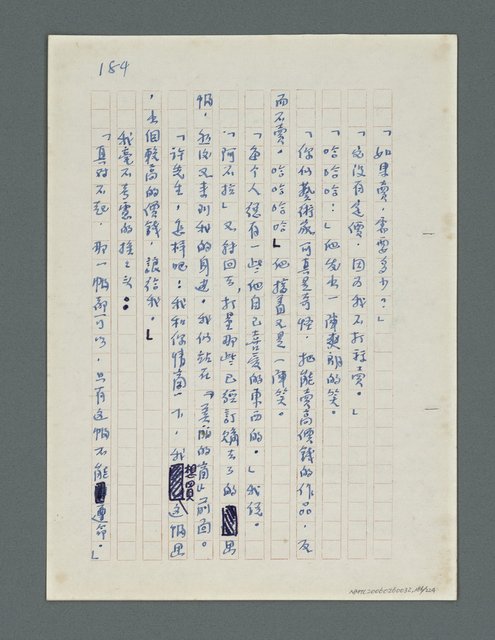 184
「如果賣，需要多少？」
「它沒有定價，因為我不打算賣。」
「哈哈哈！」他發出一陣爽朗的笑。
「你們藝術家可真是奇怪，把能賣高價錢的作品，反
而不賣。哈哈哈哈」他接著又是一陣笑。
「每个人總有一些他自己喜愛的東西的。」我說。
「阿不拉」又轉回去打量那些已經訂購去了的 畫
幅，然後又來到我的身邊。我們站在『美麗的 』前面。
「許先生，這樣吧！我和你情商一下，我想買這幅畫
，出個較高的價錢，讓給我。」
我毫不考慮的搖了頭：
「真對不起，那一幅都可以，只有這幅不能 遵命。」
NMTL20060260032, 184/224